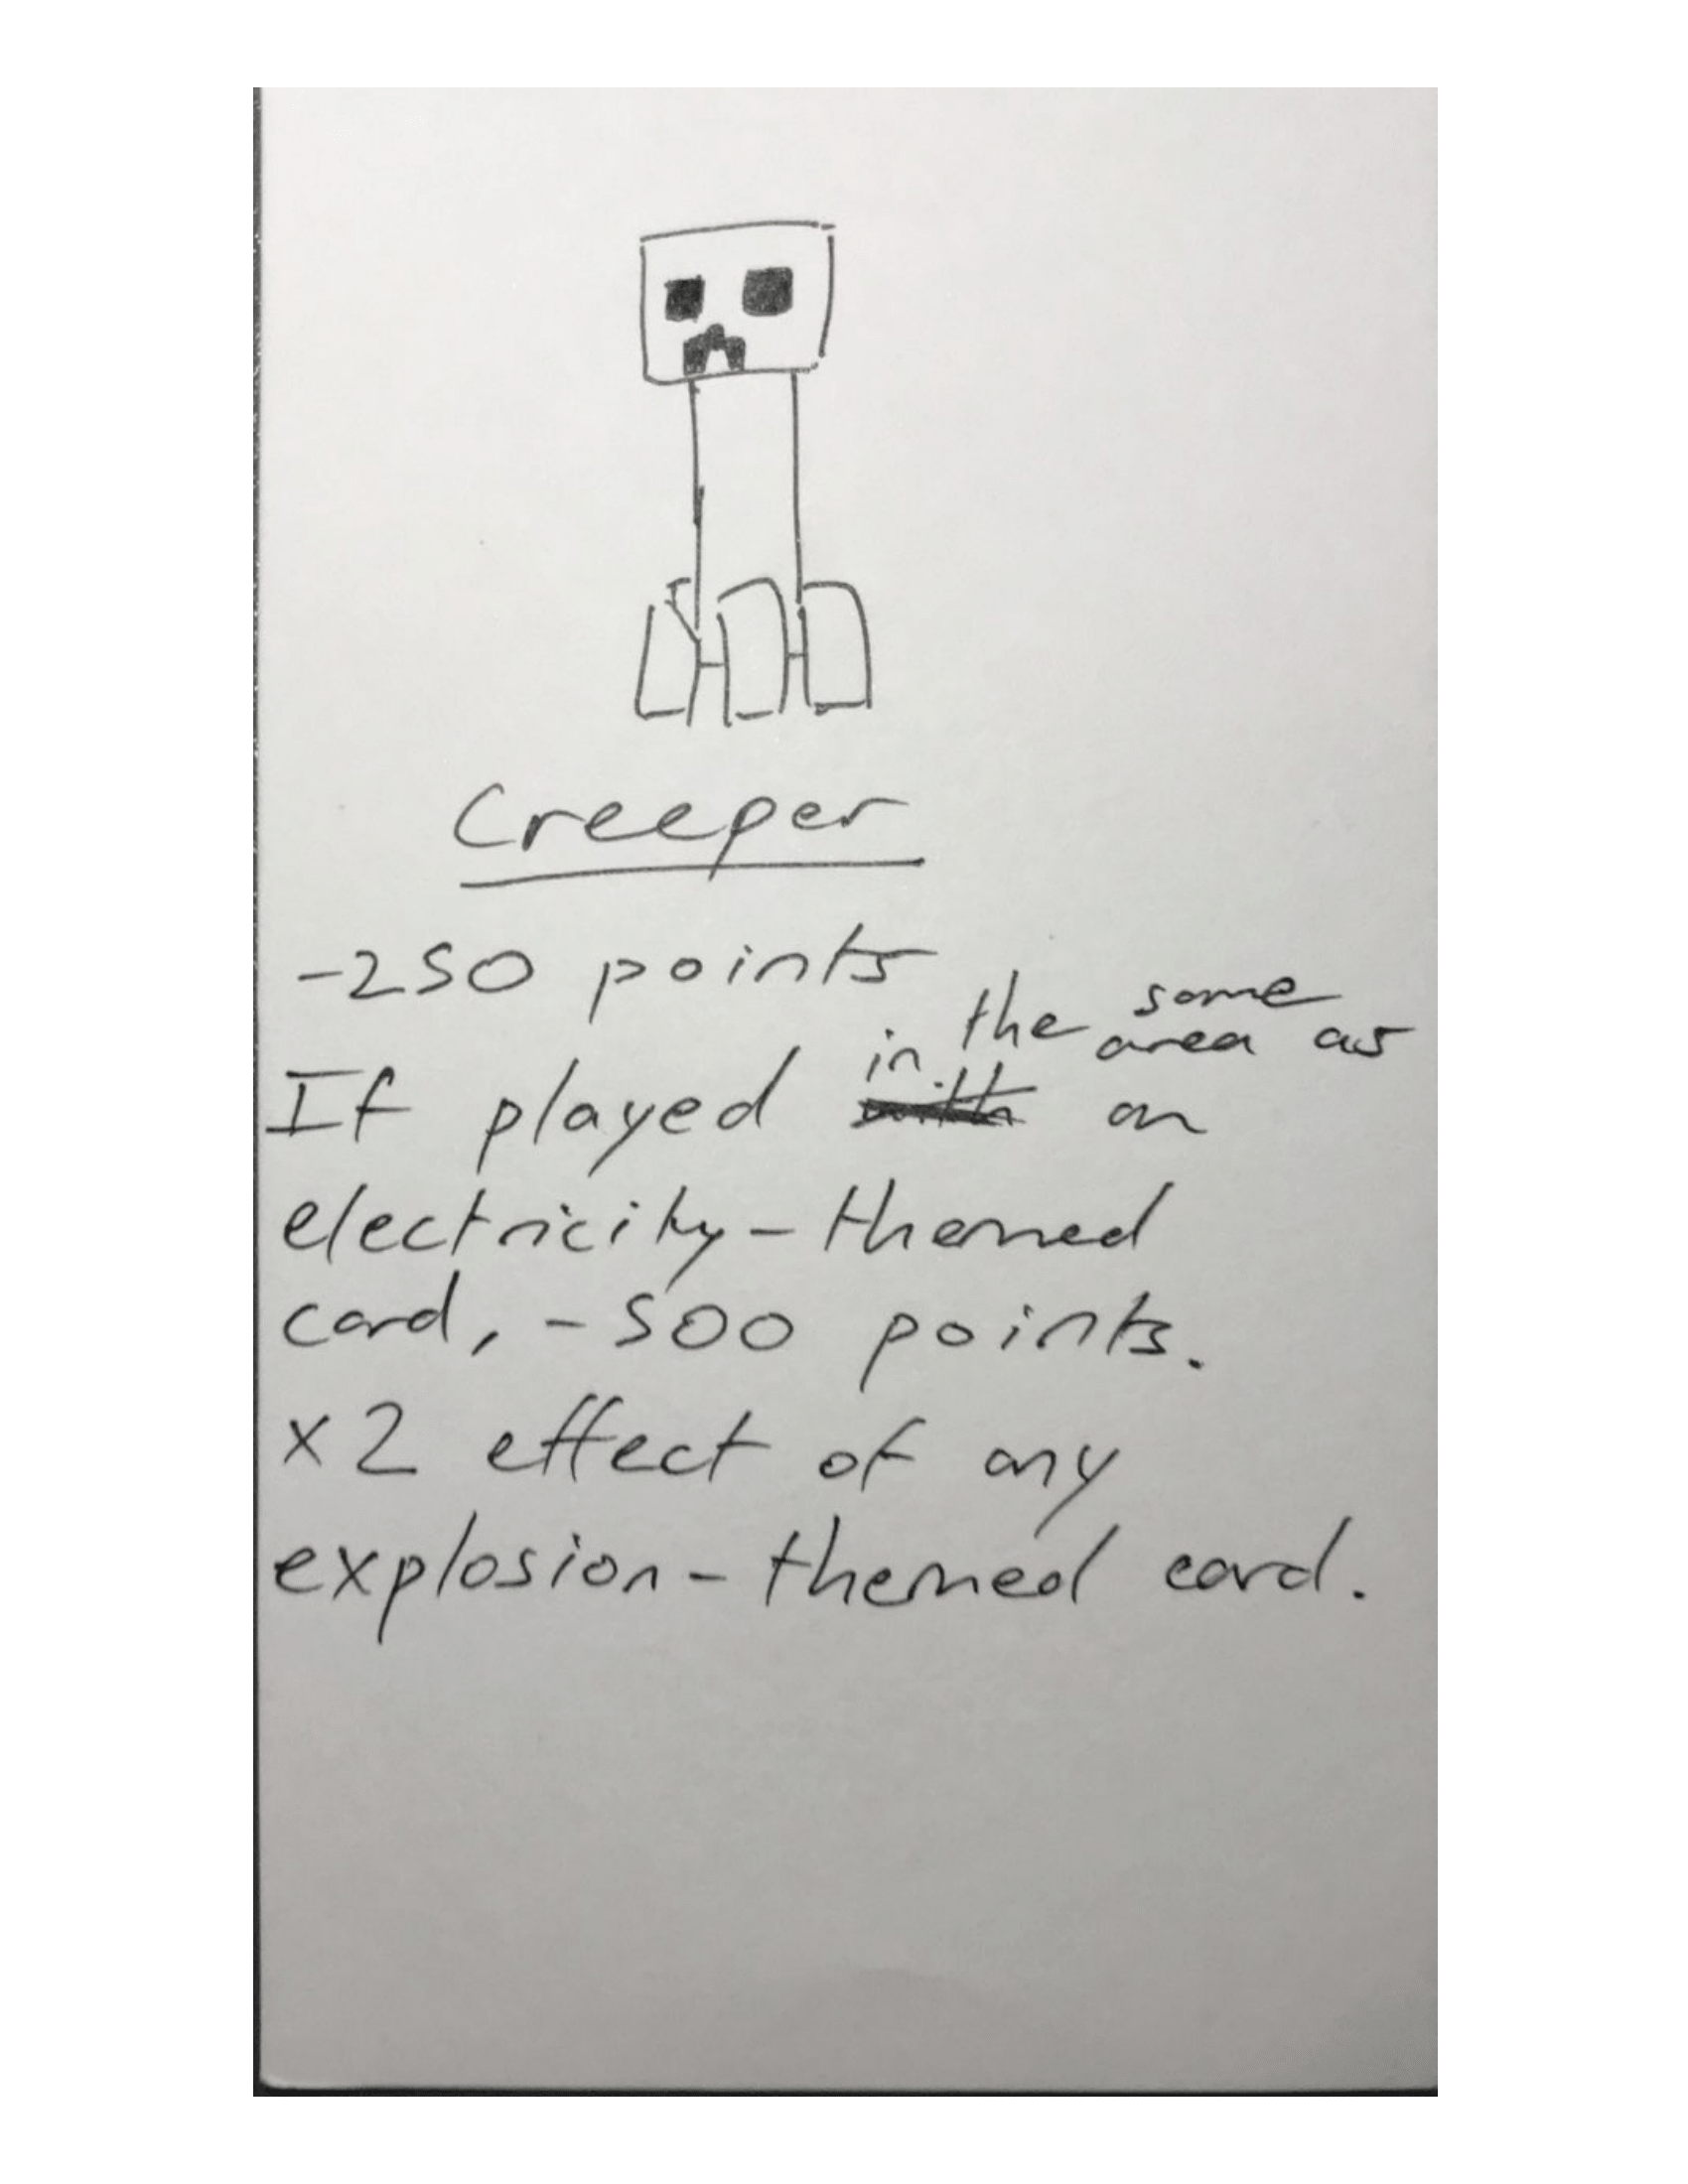 Creeper
-250 points
in the same area as
If played with an
electricity-themed
card, -500 points.
x2 effect of any
explosion-themed card.